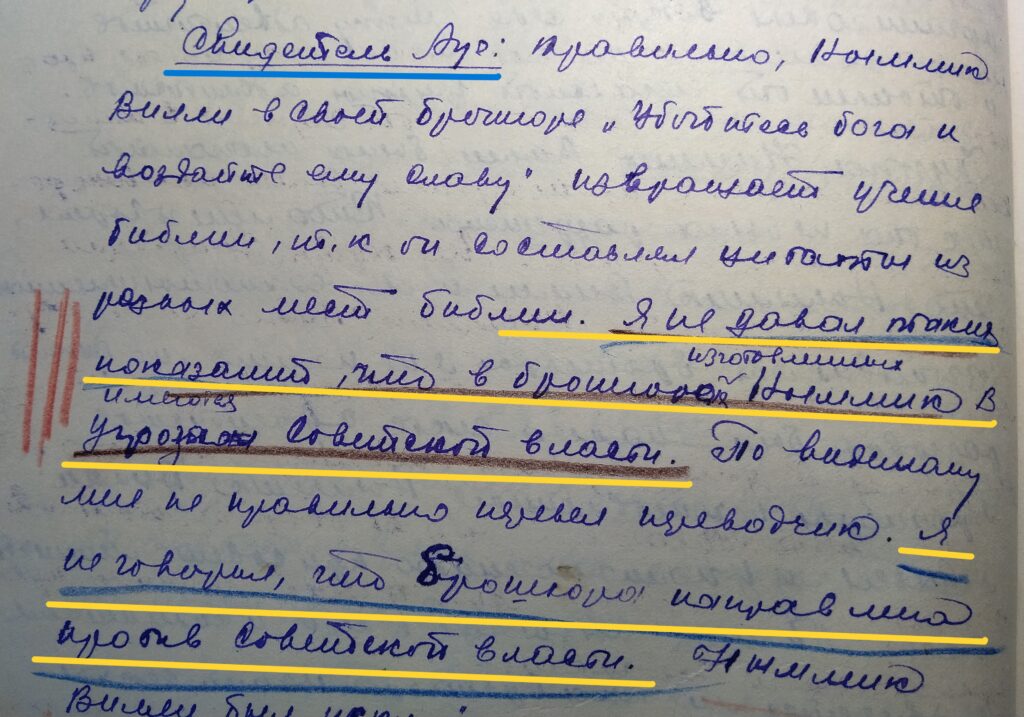 Свидетель Аус: правильно, Ныммик
Вилли в своей брошюре „Убойтесь бога и
воздайте ему славу" извращает учение
библии, т.к он составлял цитаты из
разных мест библии. Я не давал таких
показаний, что в брошюрой изготовленных Ныммик В
имеются угрозы Советской власти. По видимому
мне не правильно перевел переводчик. Я
не говорил, что брошюра направлена
против Советской власти. Ныммик
Вилли был